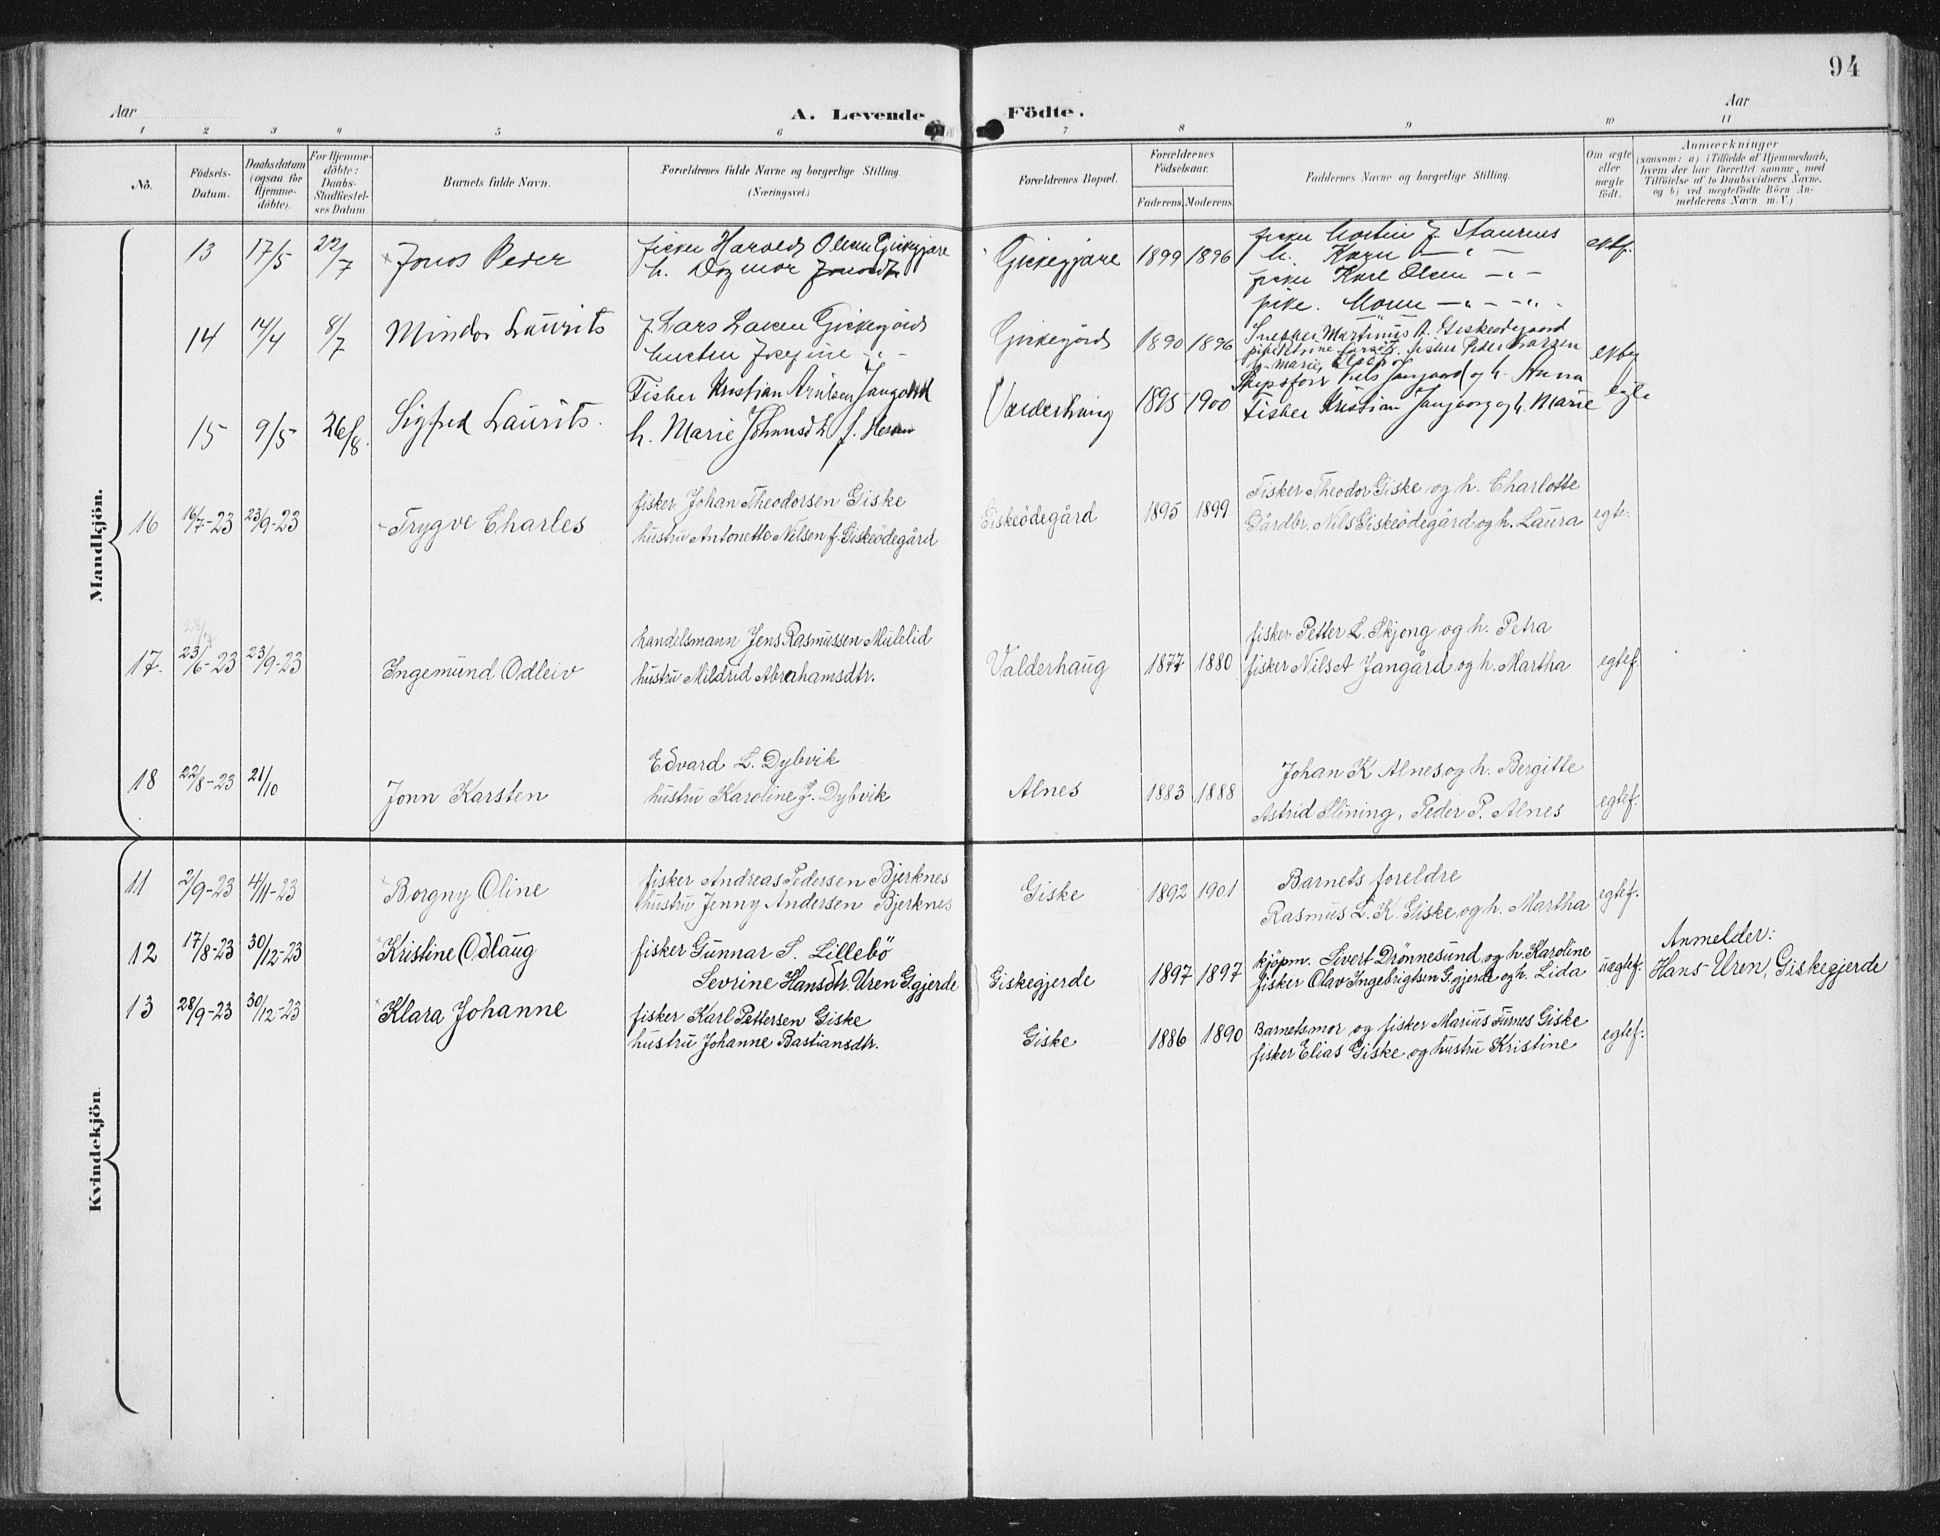 94
Aar
A. Levende
Födte.
Aar
1 2 3 4 5 6 7 8 9 10 11
No.
Födsels-Datum.
Daabsdatum (ogsaa for Hjemme-döbte).
For Hjemme-döbte: Daabs-Stadfæstel-ses Datum.
Barnets fulde Navn.
Forældrenes fulde Navne og borgerlige Stilling. (Næringsvei.)
Forældrenes Bopæl.
Forældrenes Födselsaar.
Faderens. Moderens.
Faddernes Navne og borgerlige Stilling.
Om ægte eller uægte födt.
Anmærkninger
(saasom: a) i Tilfælde af Hjemmedaab, hvem der har forrettet samme, med Tilföielse af to Daabsvidners Navne, og b) ved uægtefödte Börn An-melderens Navn m. V.)
Mandkjön.
13 17/5 22/7 Jonos Peder
fisker Harold Olsen Giskegjære
h. Dagmar
Giskegjære 1899 1896
h. Karn — „ —
fisker Karl Olsen — „ —
pike.
14 14/4 8/7 Mindor Laurits
J. Lars Larsen
Josefine — „ —
1890 1896
Snekker Martinus A. Giskeødegaard
fisker Peder Larsen
15 9/5 26/8. Sigfred Laurits.
Fisker Kristian Arntsen
h. Marie
Valderhaug 1895 1900
og h. Anna
Fisker Kristian og h. Marie
egte
16 16/7-23 23/9-23 Trygve Charles
fisker Johan Theodorsen Giske
hustru Antonette Nilsen f. Giskeödegård
Giskeödegård 1895 1899
Fisker Theodor Giske og h. Charlotte
Gårdbr. Nils Giskeödegård og h. Laura
egte.
17. 23/6-23 23/9-23 Ingemund Odleiv
handelsmann Jens Rasmussen Mulelid
hustru Mildrid Abrahamsdtr.
Valderhaug 1877 1880
fisker Petter L. Skjong og h. Petra
fisker Nils A Jangård og h. Martha
egtef.
18 22/8-23 21/10 Jonn Karsten
Edvard L. Dybvik
hustru Karoline J. Dybvik
Alnes 1883 1888
Johan K Alnes og h. Bergitte
Astrid Slining, Peder P. Alnes
egtef.
Kvindekjön.
11 2/9-23 4/11-23 Borgny Oline
fisker Andreas Pedersen Bjerknes
hustru Jenny Andersen Bjerknes
Giske 1892 1901
Barnets foreldre
Rasmus L. K. Giske og h. Martha
egtef.
12 17/8-23 30/12-23 Kristine Odlaug
fisker Gunnar S. Lillebö
Sevrine Hansdtr. Uren G.gjerde
Giskegjerde 1897 1897
kjöpm. Sivert Drönnesund og h. Karoline
fisker Olav Ingebrigtsen G.gjerde og h. Lida
uegtef.
Anmelder:
Hans Uren, Giskegjerde
13 28/9-23 30/12-23 Klara Johanne
fisker Karl Pettersen Giske
hustru Johanne Bastiansdtr.
Giske 1886 1890
Barnetsmor og fisker Marius Furnes Giske
fisker Elias Giske og hustru Kristine
egtef.